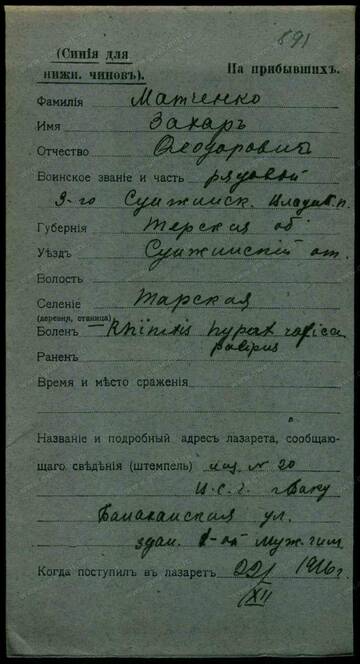 891
(Синія для
нижн. чиновъ).
На прибывшихъ.
Фамилія Матченко
Имя Захаръ
Отчество Феодоровичъ
Воинское званіе и часть рядовой
3-го Сунжинск. Владик. п.
Губернія Терская об
Уѣздъ Сунжинскій от.
Волость
Селеніе Тарская
(деревня, станица)
Боленъ — Rhinitis hypertrofica
Раненъ polipus
Время и мѣсто сраженія
Названіе и подробный адресъ лазарета, сообщаю-
щаго свѣдѣнія (штемпель) лаз. № 20
И.С.Г. г. Баку
Балаханская ул.
здан. 1-ой Муж. гим.
Когда поступилъ въ лазаретъ 22/ 1916 г.
XII